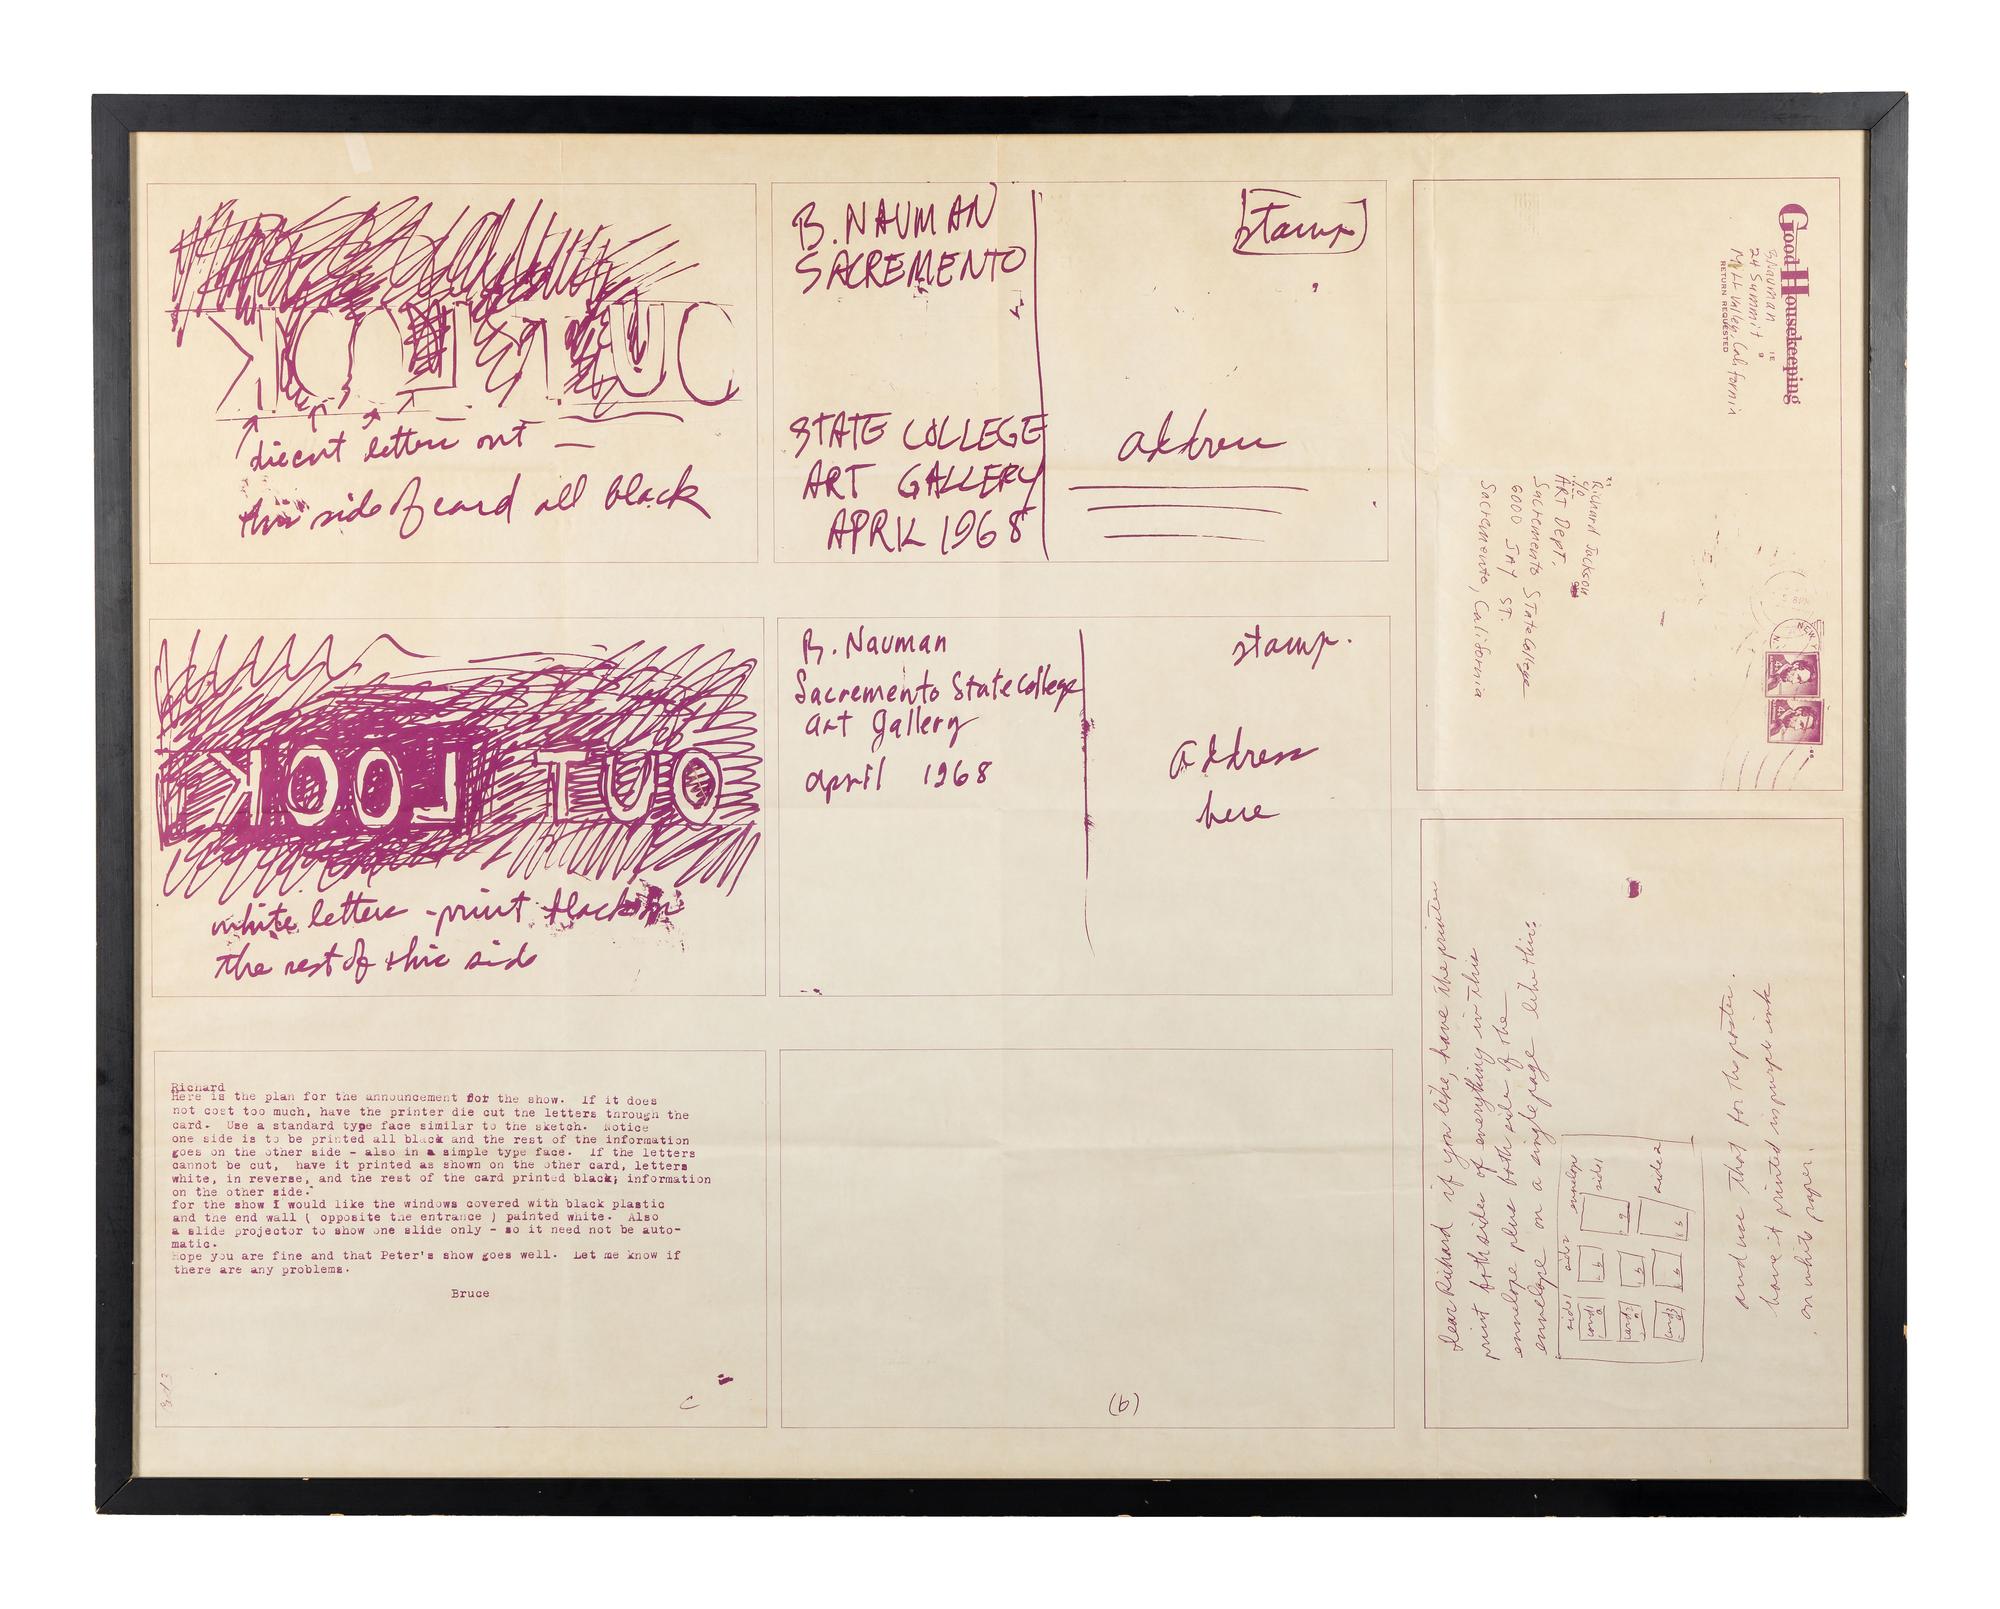 LOOK OUT
diecut letters out —
this side of card all black
B. NAUMAN
SACREMENTO
STATE COLLEGE
ART GALLERY
APRIL 1968
stamp
address
Good Housekeeping
BNauman
24 Summit
Mill Valley, California
RETURN REQUESTED
Richard Jackson
c/o
ART DEPT.
Sacremento State College
6000 JAY ST.
Sacremento, California
LOOK OUT
white letters - print black in
the rest of this side
B. Nauman
Sacremento State College
art Gallery
april 1968
stamp.
address
here
Richard
Here is the plan for the announcement for the show. If it does
not cost too much, have the printer die cut the letters through the
card. Use a standard type face similar to the sketch. Notice
one side is to be printed all black and the rest of the information
goes on the other side - also in a simple type face. If the letters
cannot be cut, have it printed as shown on the other card, letters
white, in reverse, and the rest of the card printed black; information
on the other side.
for the show I would like the windows covered with black plastic
and the end wall ( opposite the entrance ) painted white. Also
a slide projector to show one slide only - so it need not be auto-
matic.
Hope you are fine and that Peter's show goes well. Let me know if
there are any problems.
Bruce
C
(b)
dear Richard if you like, have the printer
print both sides of everything in this
envelope plus both sides of the
envelope on a single page like this:
side 1 side 2 envelope
card 1 a b side 1
card 2 a b a
card 3 a b b side 2
and use that for the poster.
have it printed in purple ink
on white paper.